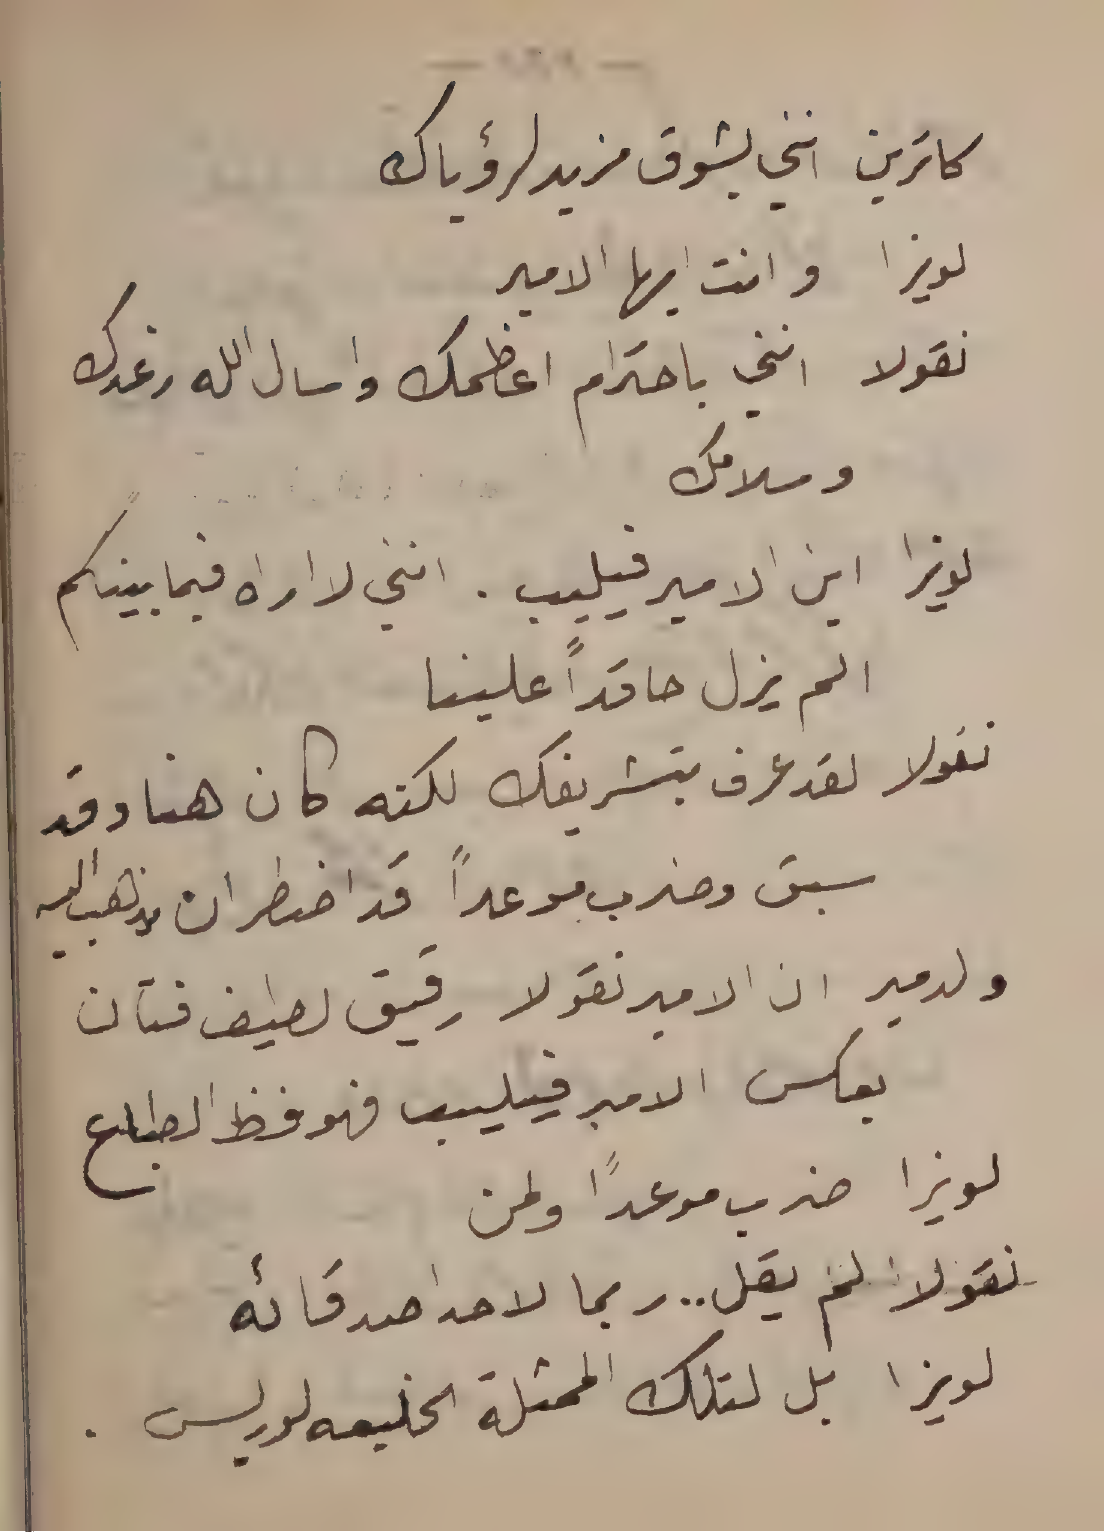 كاترين انني بشوق مزيد لرؤياك
لويزا وانت ايها الامير
نقولا انني باحترام اعظمك واسال الله رغدك
وسلامك
لويزا اين الامير فيليب . انني لا اراه فيما بينكم
الم يزل حاقداً علينا
نقولا لقد عرف بتشريفك لكنه كان هنا وقد
سبق وضرب موعداً قد اضطر ان يذهب اليه
ولدمير ان الامير نقولا رقيق لطيف فتان
بعكس الامير فيليب فهو فظ الطباع
لويزا ضرب موعداً ولمن
نقولا لم يقل .. ربما لاحد اصدقائه
لويزا بل لتلك الممثلة الخليعه لوريس .